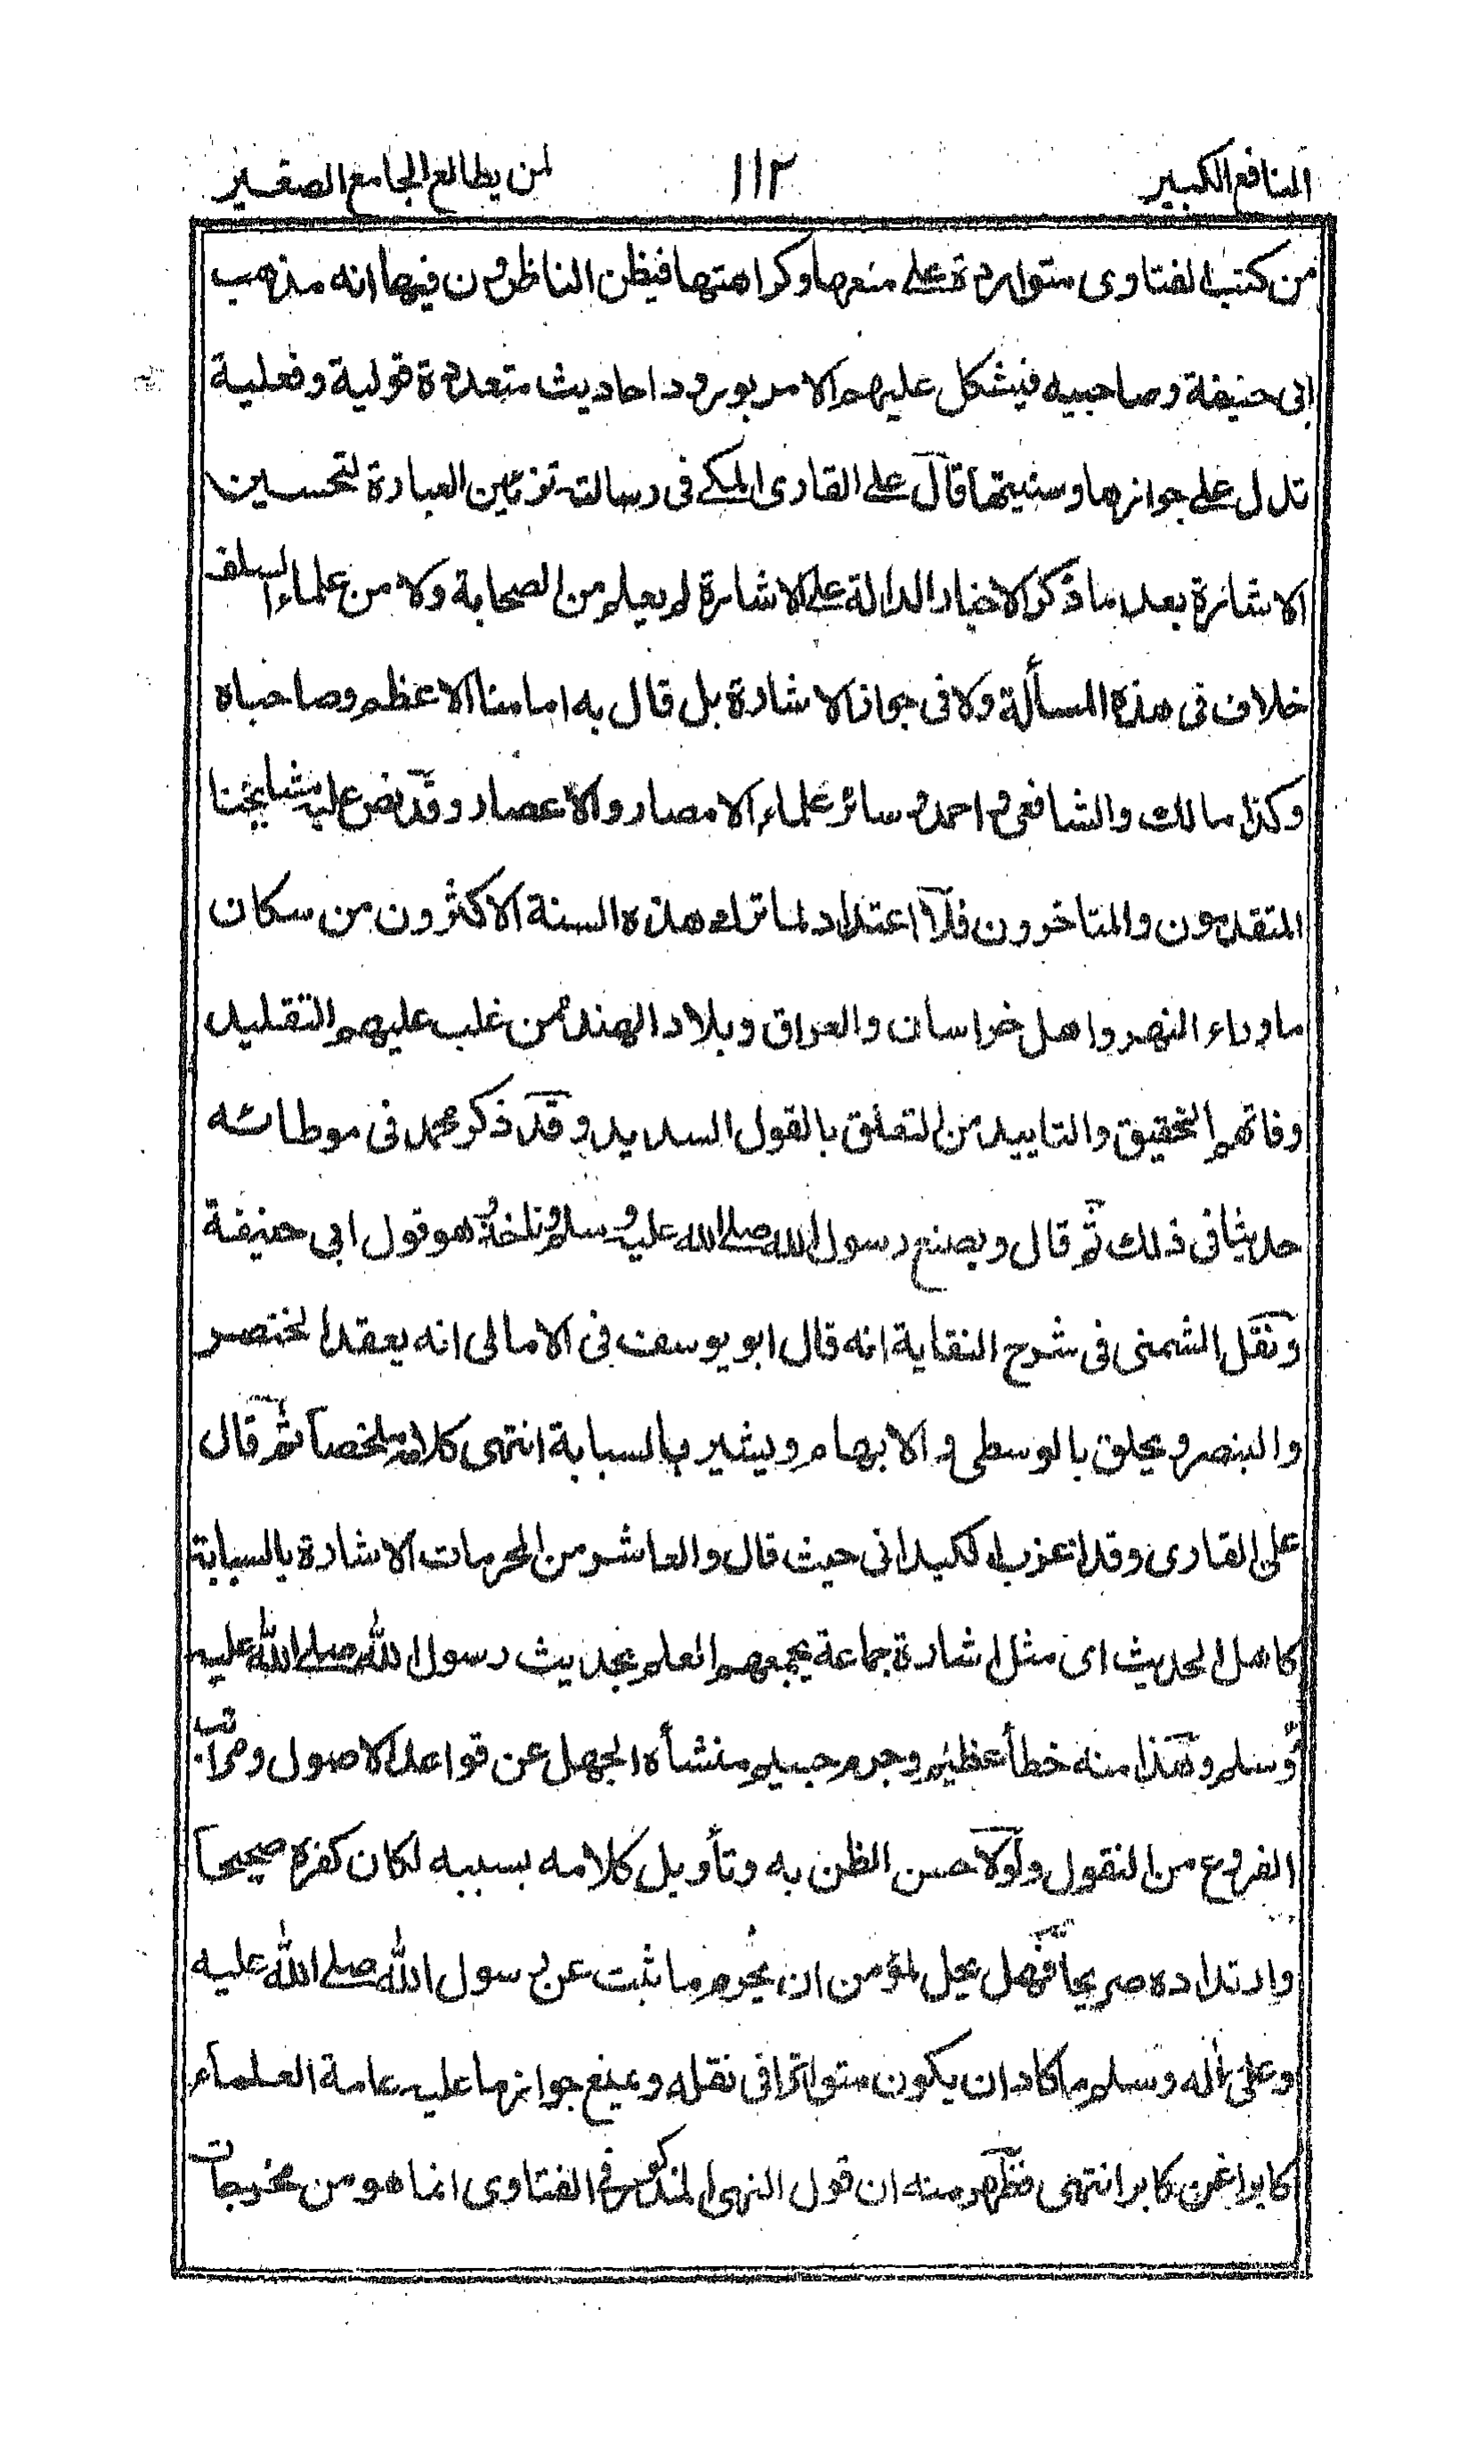 النافع الكبير ١١٢ لمن يطالع الجامع الصغير
من كتب الفتاوى متواردة على منعها وكراهتها فيظن الناظرون فيها انه مذهب
ابى حنيفة وصاحبيه فيشكل عليهم الامر بورود احاديث متعددة قولية وفعلية
تدل على جوازها وسنيتها قال على القارى المكى فى رسالته تزئين العبارة لتحسين
الاشارة بعد ما ذكر الاخبار الدالة على الاشارة لم يعلم من الصحابة ولا من علماء السلف
خلاف فى هذه المسألة ولا فى جواز الاشارة بل قال به امامنا الاعظم وصاحباه
وكذا مالك والشافعى واحمد وسائر علماء الامصار والاعصار وقد نص عليه مشايخنا
المتقدمون والمتاخرون فلا اعتداد لما ترك هذه السنة الاكثرون من سكان
ماوراء النهر واهل خراسان والعراق وبلاد الهند ممن غلب عليهم التقليد
وفاتهم التحقيق والتاييد من التعلق بالقول السديد وقد ذكر محمد فى موطائه
حديثا فى ذلك ثم قال وبصنع رسول الله صلى الله عليه وسلم ناخذ وهو قول ابى حنيفة
ونقل الشمنى فى شرح النقاية انه قال ابو يوسف فى الامالى انه يعقد الخنصر
والبنصر ويحلق بالوسطى والابهام ويشير بالسبابة انتهى كلامه ملخصا ثم قال
على القارى وقد اغرب الكيدانى حيث قال والعاشر من المحرمات الاشارة بالسبابة
كاهل الحديث اى مثل اشارة جماعة يجمعهم العلم بحديث رسول الله صلى الله عليه
وسلم وهذا منه خطأ عظيم وجرم جسيم منشأه الجهل عن قواعد الاصول ومراتب
الفروع من النقول ولولا حسن الظن به وتأويل كلامه بسببه لكان كفره صحيحا
وارتداده صريحا فهل يحل لمؤمن ان يحرم ما ثبت عن رسول الله صلى الله عليه
وعلى اله وسلم ما كاد ان يكون متواترا فى نقله ويمنع جواز ما عليه عامة العلماء
كابرا عن كابر انتهى فظهر منه ان قول النهى المذكور فى الفتاوى انما هو من مخرجات